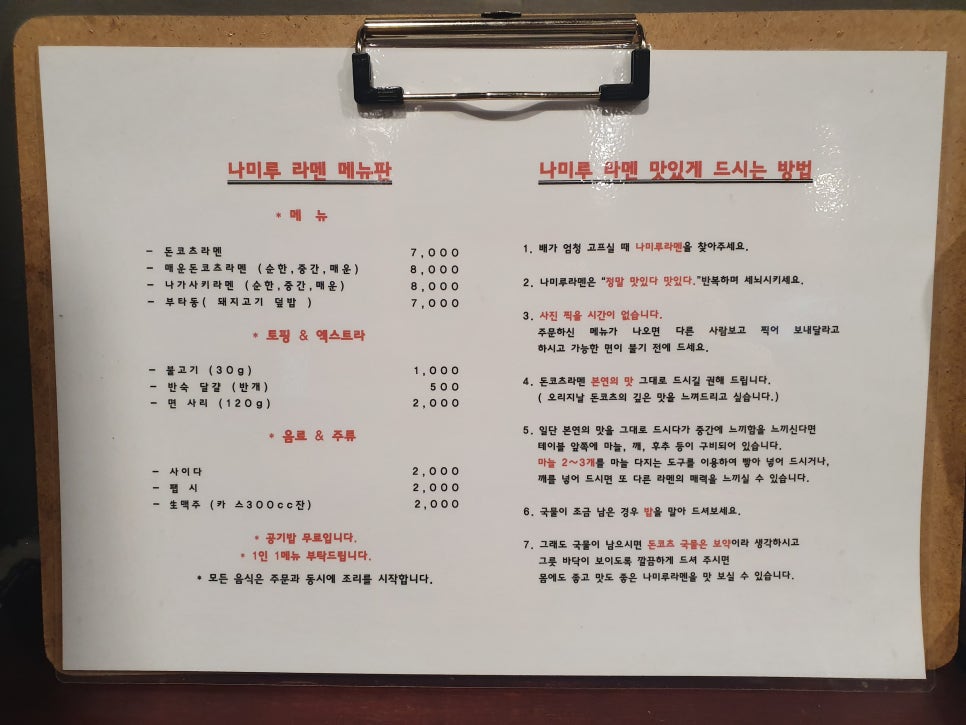 나미루 라멘 메뉴판
* 메 뉴
- 돈코츠라멘 7,000
- 매운돈코츠라멘 (순한,중간,매운) 8,000
- 나가사키라멘 (순한,중간,매운) 8,000
- 부타동( 돼지고기 덮밥 ) 7,000
* 토핑 & 엑스트라
- 불고기 (30g) 1,000
- 반숙 달걀 (반개) 500
- 면 사리 (120g) 2,000
* 음료 & 주류
- 사이다 2,000
- 펩 시 2,000
- 生맥주 (카 스300cc잔) 2,000
* 공기밥 무료입니다.
* 1인 1메뉴 부탁드립니다.
* 모든 음식은 주문과 동시에 조리를 시작합니다.
나미루 라멘 맛있게 드시는 방법
1. 배가 엄청 고프실 때 나미루라멘을 찾아주세요.
2. 나미루라멘은 “정말 맛있다 맛있다.”반복하며 세뇌시키세요.
3. 사진 찍을 시간이 없습니다.
주문하신 메뉴가 나오면 다른 사람보고 찍어 보내달라고
하시고 가능한 면이 불기 전에 드세요.
4. 돈코츠라멘 본연의 맛 그대로 드시길 권해 드립니다.
( 오리지날 돈코츠의 깊은 맛을 느껴드리고 싶습니다.)
5. 일단 본연의 맛을 그대로 드시다가 중간에 느끼함을 느끼신다면
테이블 앞쪽에 마늘, 깨, 후추 등이 구비되어 있습니다.
마늘 2~3개를 마늘 다지는 도구를 이용하여 빻아 넣어 드시거나,
깨를 넣어 드시면 또 다른 라멘의 매력을 느끼실 수 있습니다.
6. 국물이 조금 남은 경우 밥을 말아 드셔보세요.
7. 그래도 국물이 남으시면 돈코츠 국물은 보약이라 생각하시고
그릇 바닥이 보이도록 깔끔하게 드셔 주시면
몸에도 좋고 맛도 좋은 나미루라멘을 맛 보실 수 있습니다.